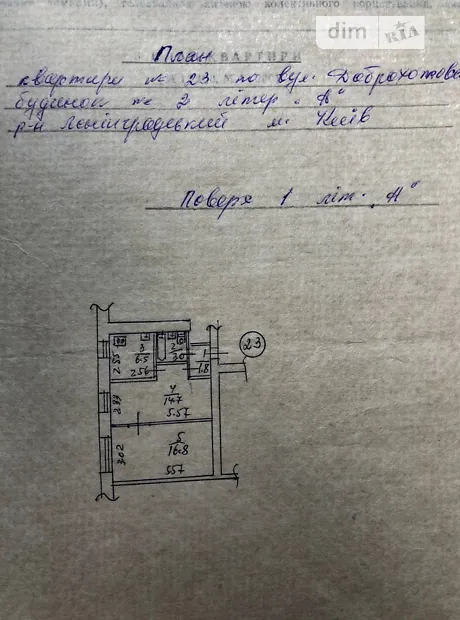 dim RIA
План
КВАРТИРИ
квартири № 23 по вул. Доброхотова
будинок № 2 літер „А"
р-н Ленінградський м. Київ
Поверх 1 літ. „А"
23
3
6.5
2.56
2.55
2
3.0
1
1.8
4
14.7
5.57
2.77
5
16.8
5.57
3.02